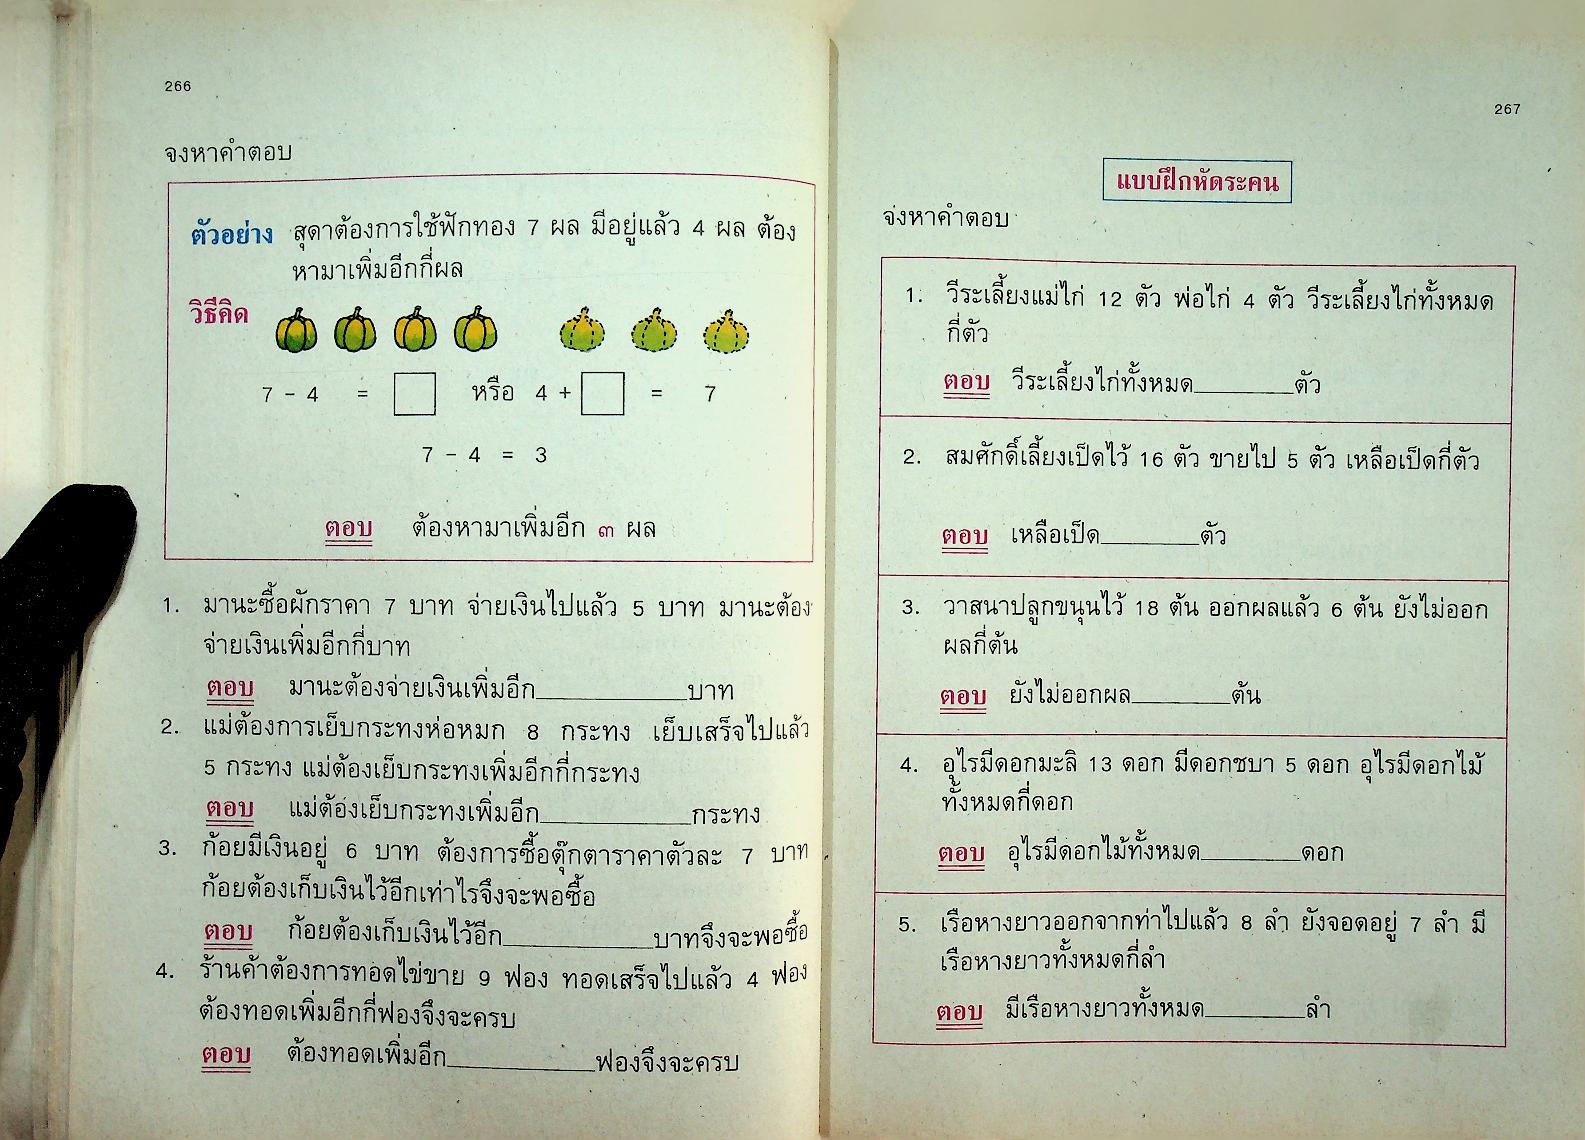 266
จงหาคำตอบ
ตัวอย่าง สุดาต้องการใช้ฟักทอง 7 ผล มีอยู่แล้ว 4 ผล ต้อง
หามาเพิ่มอีกกี่ผล
วิธีคิด
7 – 4 = □ หรือ 4 + □ = 7
7 – 4 = 3
ตอบ ต้องหามาเพิ่มอีก ๓ ผล
1. มานะซื้อผักราคา 7 บาท จ่ายเงินไปแล้ว 5 บาท มานะต้อง
จ่ายเงินเพิ่มอีกกี่บาท
ตอบ มานะต้องจ่ายเงินเพิ่มอีก__________บาท
2. แม่ต้องการเย็บกระทงห่อหมก 8 กระทง เย็บเสร็จไปแล้ว
5 กระทง แม่ต้องเย็บกระทงเพิ่มอีกกี่กระทง
ตอบ แม่ต้องเย็บกระทงเพิ่มอีก__________กระทง
3. ก้อยมีเงินอยู่ 6 บาท ต้องการซื้อตุ๊กตาราคาตัวละ 7 บาท
ก้อยต้องเก็บเงินไว้อีกเท่าไรจึงจะพอซื้อ
ตอบ ก้อยต้องเก็บเงินไว้อีก__________บาทจึงจะพอซื้อ
4. ร้านค้าต้องการทอดไข่ขาย 9 ฟอง ทอดเสร็จไปแล้ว 4 ฟอง
ต้องทอดเพิ่มอีกกี่ฟองจึงจะครบ
ตอบ ต้องทอดเพิ่มอีก__________ฟองจึงจะครบ
267
แบบฝึกหัดระคน
จงหาคำตอบ
1. วีระเลี้ยงแม่ไก่ 12 ตัว พ่อไก่ 4 ตัว วีระเลี้ยงไก่ทั้งหมด
กี่ตัว
ตอบ วีระเลี้ยงไก่ทั้งหมด_______ตัว
2. สมศักดิ์เลี้ยงเป็ดไว้ 16 ตัว ขายไป 5 ตัว เหลือเป็ดกี่ตัว
ตอบ เหลือเป็ด_______ตัว
3. วาสนาปลูกขนุนไว้ 18 ต้น ออกผลแล้ว 6 ต้น ยังไม่ออก
ผลกี่ต้น
ตอบ ยังไม่ออกผล_______ต้น
4. อุไรมีดอกมะลิ 13 ดอก มีดอกชบา 5 ดอก อุไรมีดอกไม้
ทั้งหมดกี่ดอก
ตอบ อุไรมีดอกไม้ทั้งหมด_______ดอก
5. เรือหางยาวออกจากท่าไปแล้ว 8 ลำ ยังจอดอยู่ 7 ลำ มี
เรือหางยาวทั้งหมดกี่ลำ
ตอบ มีเรือหางยาวทั้งหมด_______ลำ